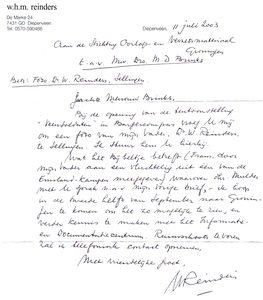 w.h.m. reinders
De Marke 24
7431 GD Diepenveen
Tel. 0570-590466
Diepenveen, 11 juli 2003
Aan de Stichting Oorlogs- en Verzetsmateriaal
Groningen
t.a.v. Mw. Drs. M.D. Brinks
Betr: Foto Dr. W. Reinders, Sellingen.
Geachte Mevrouw Brinks,
Bij de opening van de tentoonstelling
in Burgercompas vroeg U mij
om een foto van mijn vader, Dr. W. Reinders,
te Sellingen. Ik stuur hem U hierbij.
Wat het bijbeltje betreft (Frans, door
mijn vader aan een vluchteling uit een van de
Emsland-Kampen meegegeven) waarover Uw Mulder
met U sprak n.a.v. mijn vorige brief, - ik hoop
in de tweede helft van September naar Gronin-
gen te komen om het zo mogelijk te zien, en
verder kennis te maken met het Informatie-
en Documentatiecentrum. Ruimschoots tevoren
zal ik telefonisch contact opnemen.
Met vriendelijke groet,
W Reinders